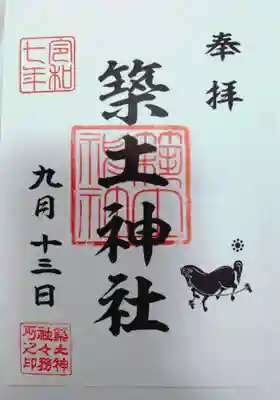 奉拝
築土神社
令和
七年
九月十三日
築土神
社々務
所之印